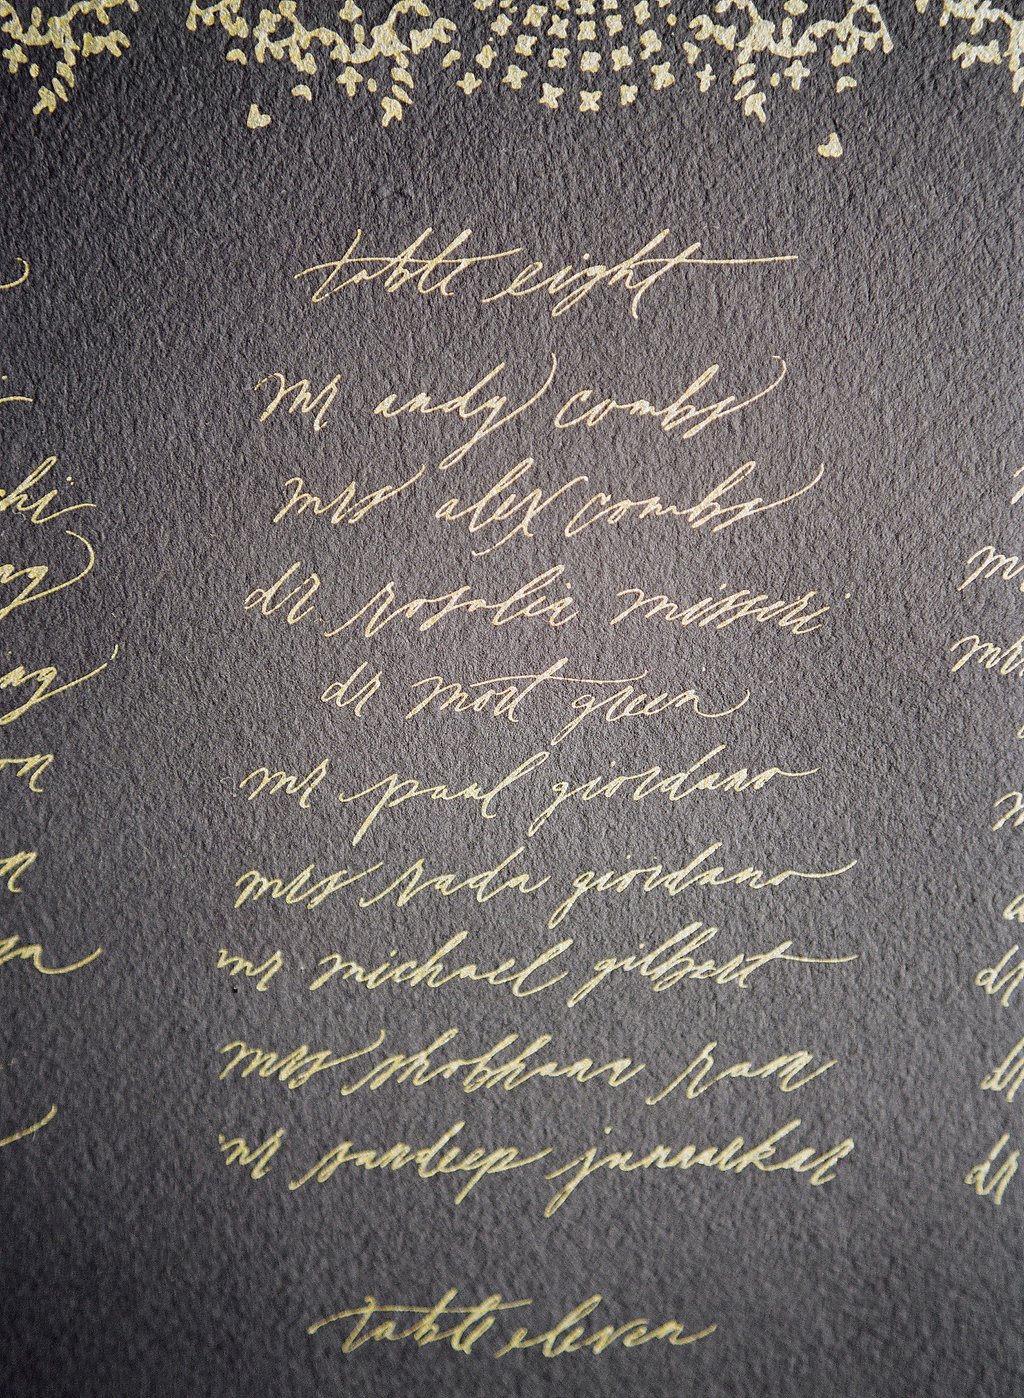 table eight
mr andy combs
mrs alex combs
dr. rosalie misseri
dr mort green
mr paul giordano
mrs sada giordano
mr michael gilbert
mrs shobhana ram
mr sandeep junnarkar
table eleven